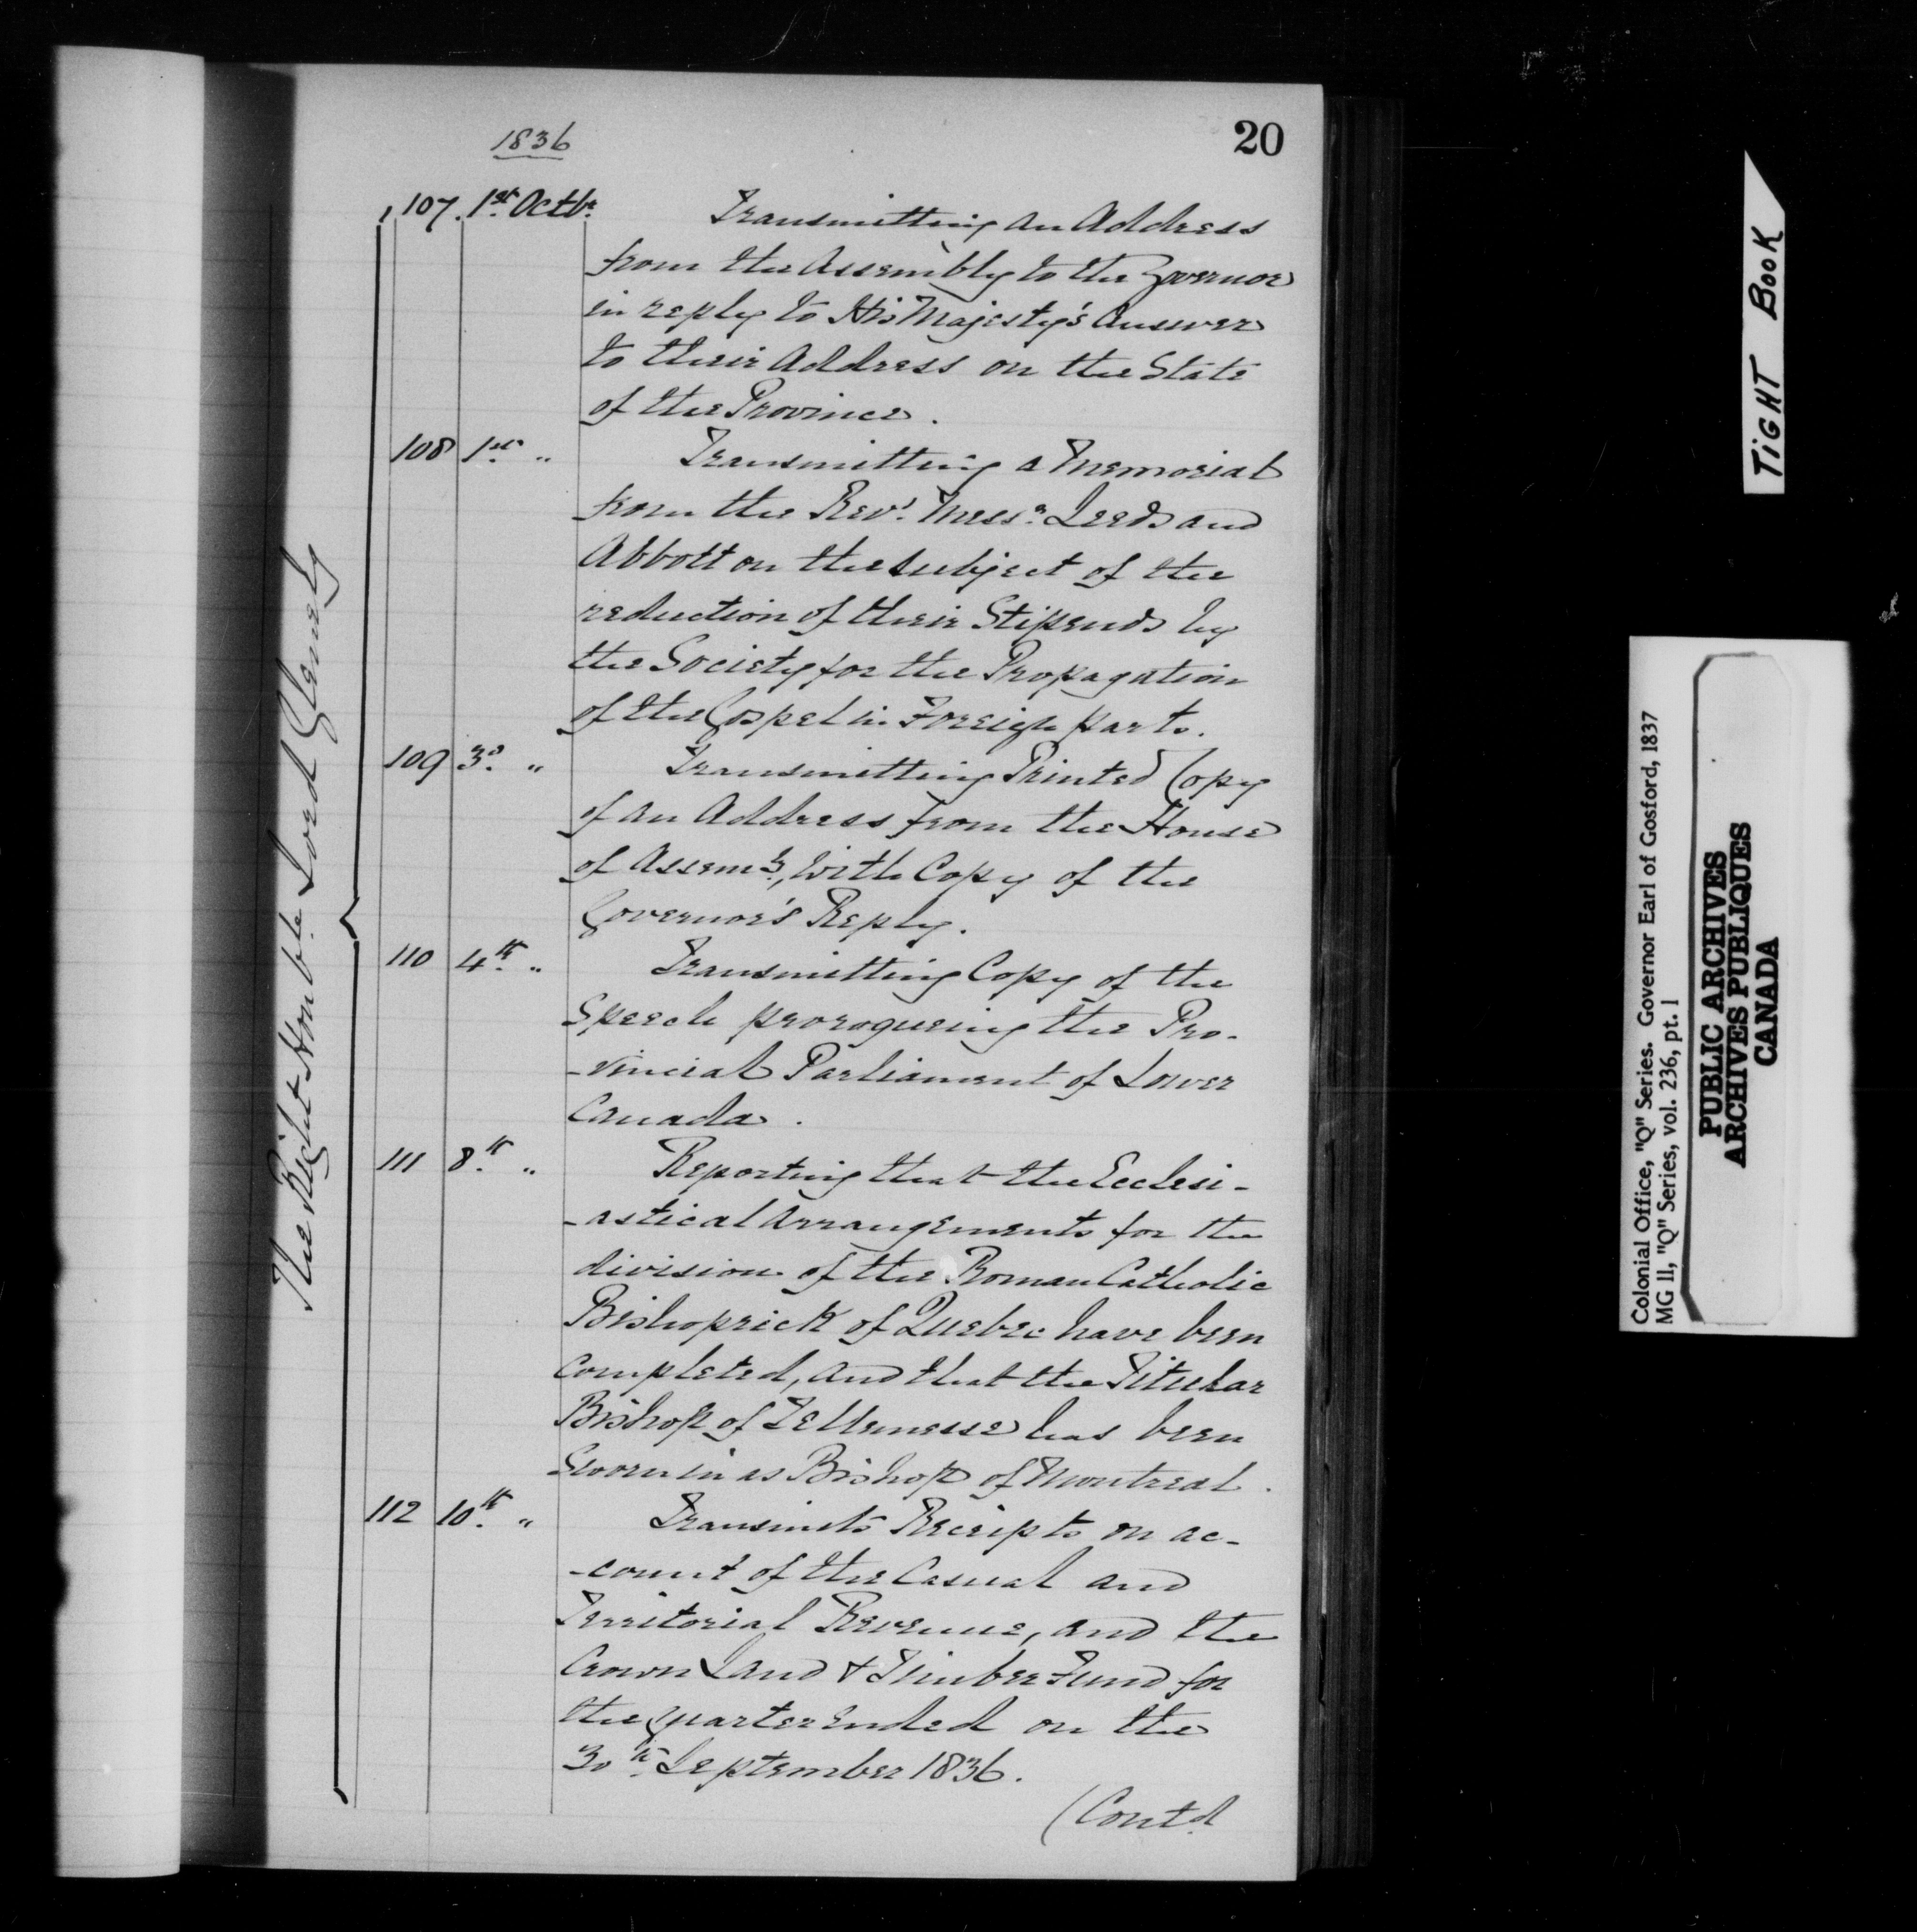 20
1836
The Right Honble. Lord Glenelg
107. 1st Octbr. Transmitting an Address
from the Assembly to the Governor
in reply to His Majesty's Answer
to their Address on the State
of the Province.
108 1st. " Transmitting a Memorial
from the Revd. Messrs. Leeds and
Abbott on the subject of the
reduction of their Stipends by
the Society for the Propagation
of the Gospel in Foreign parts.
109 3d. " Transmitting Printed Copy
of an Address from the House
of Assemy., with Copy of the
Governor's Reply.
110 4th. " Transmitting Copy of the
Speech proroguing the Pro-
-vincial Parliament of Lower
Canada.
111 8th. " Reporting that the Ecclesi-
-astical Arrangements for the
division of the Roman Catholic
Bishoprick of Quebec have been
completed, and that the Titular
Bishop of has been
Sworn in as Bishop of Montreal.
112 10th. " Transmits Receipts on ac-
-count of the Casual and
Territorial Revenue, and the
Crown Land & Timber Fund for
the quarter ended on the
30th. September 1836.
(Contd.
TIGHT BOOK
Colonial Office, "Q" Series. Governor Earl of Gosford, 1837
MG 11, "Q" Series, vol. 236, pt. 1
PUBLIC ARCHIVES
ARCHIVES PUBLIQUES
CANADA